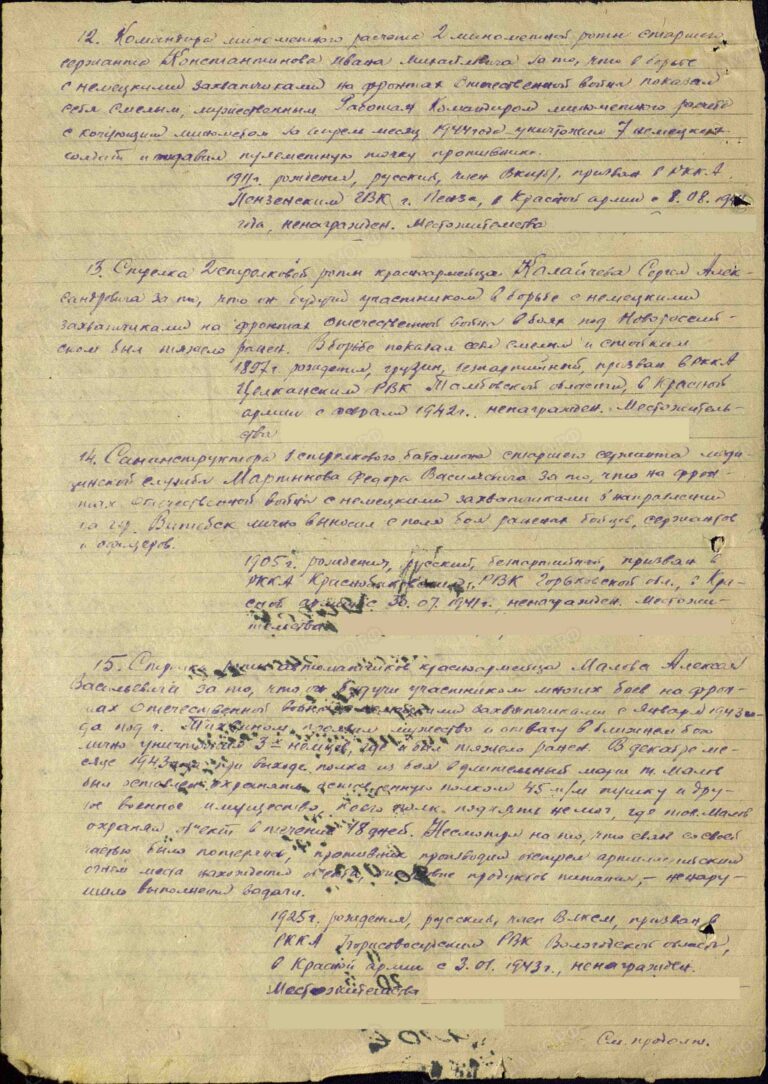 12. Командира минометного расчета 2 минометной роты старшего
сержанта Константинова Ивана Михайловича за то, что в борьбе
с немецкими захватчиками на фронтах Отечественной войны показал
себя смелым, мужественным. Работая Командиром минометного расчета
с кочующим минометом за апрель месяц 1944 года уничтожил 7 немецких
солдат и подавил пулеметную точку противника.
1911г. рождения, русский, член ВКП(б), призван в РККА
Пензенским ГВК г. Пенза, в Красной армии с 8.08.
года, ненагражден. Местожительства
13. Стрелка 2 стрелковой роты красноармейца Калайчева Сергея Алек-
сандровича за то, что он будучи участником в борьбе с немецкими
захватчиками на фронтах отечественной войны в боях под Новороссий-
ском был тяжело ранен. В борьбе показал себя смелым и стойким
1897г. рождения, грузин, беспартийный, призван в РККА
РВК Тамбовской области, в Красной
армии с февраля 1942г., ненагражден. Местожитель-
ства
14. Санинструктора 1 стрелкового батальона старшего сержанта меди-
цинской службы Мартынова Федора Васильевича за то, что на фрон-
тах Отечественной войны с немецкими захватчиками в направлении
на гор. Витебск лично выносил с поля боя раненых бойцов, сержантов
и офицеров.
1905г. рождения, русский, беспартийный, призван в
РККА РВК Горьковской обл., в Кра-
сной армии с 30.07.1941г., ненагражден. Местожи-
тельства
15. Стрелка роты автоматчиков красноармейца Малова Алексея
Васильевича за то, что он будучи участником многих боев на фрон-
тах Отечественной войны с немецкими захватчиками с января 1943 го-
да под г. проявил мужество и отвагу в ближнем бою
лично уничтожил 3-х немцев, где и был тяжело ранен. В декабре ме-
сяце 1943 года при выходе полка из боя в длительный марш т. Малов
был оставлен охранять полком 45 м/м пушку и дру-
гое военное имущество, поднять не мог, где тов. Малов
охранял объект в течении 18 дней. Несмотря на то, что связь со своей
частью была потеряна, противник производил обстрел артиллерийским
огнем места нахождения объекта, продуктов питания, – ненару-
шил выполнения задачи.
1925г. рождения, русский, член ВЛКСМ, призван в
РККА Борисовосудским РВК Вологодской области,
в Красной армии с 3.01.1943г., ненагражден.
Местожительства
См. продолж.